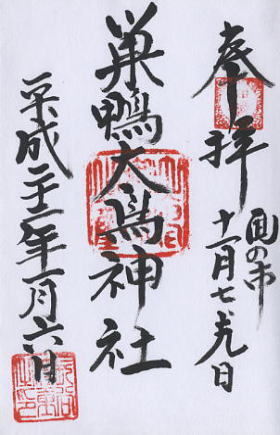 奉拝
酉の市
十一月七・十九日
巣鴨大鳥神社
平成二十二年一月六日